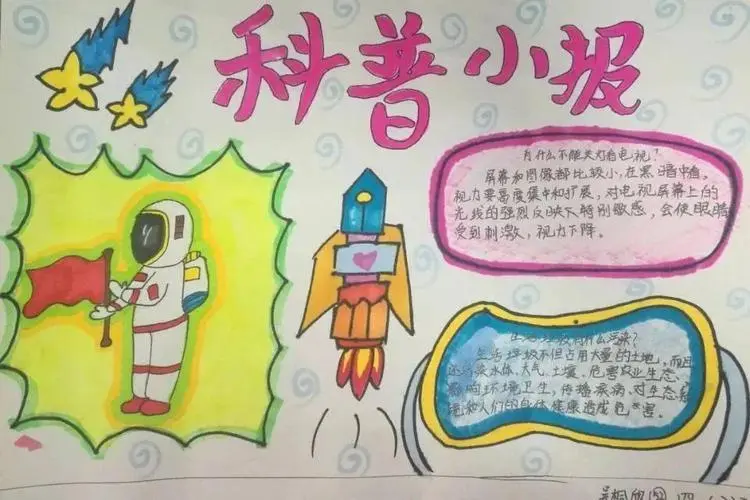 科普小报
为什么不能关灯看电视?
屏幕和图像都比较小,在黑暗中看,
视力要高度集中和扩展,对电视屏幕上的
光线的强烈反映下特别敏感,会使眼睛
受到刺激,视力下降。
生活垃圾有什么污染?
生活垃圾不但占用大量的土地,而且
还污染水体、大气、土壤、危害农业生态、
影响环境卫生,传播疾病,对生态
和人们的身体健康造成危害。